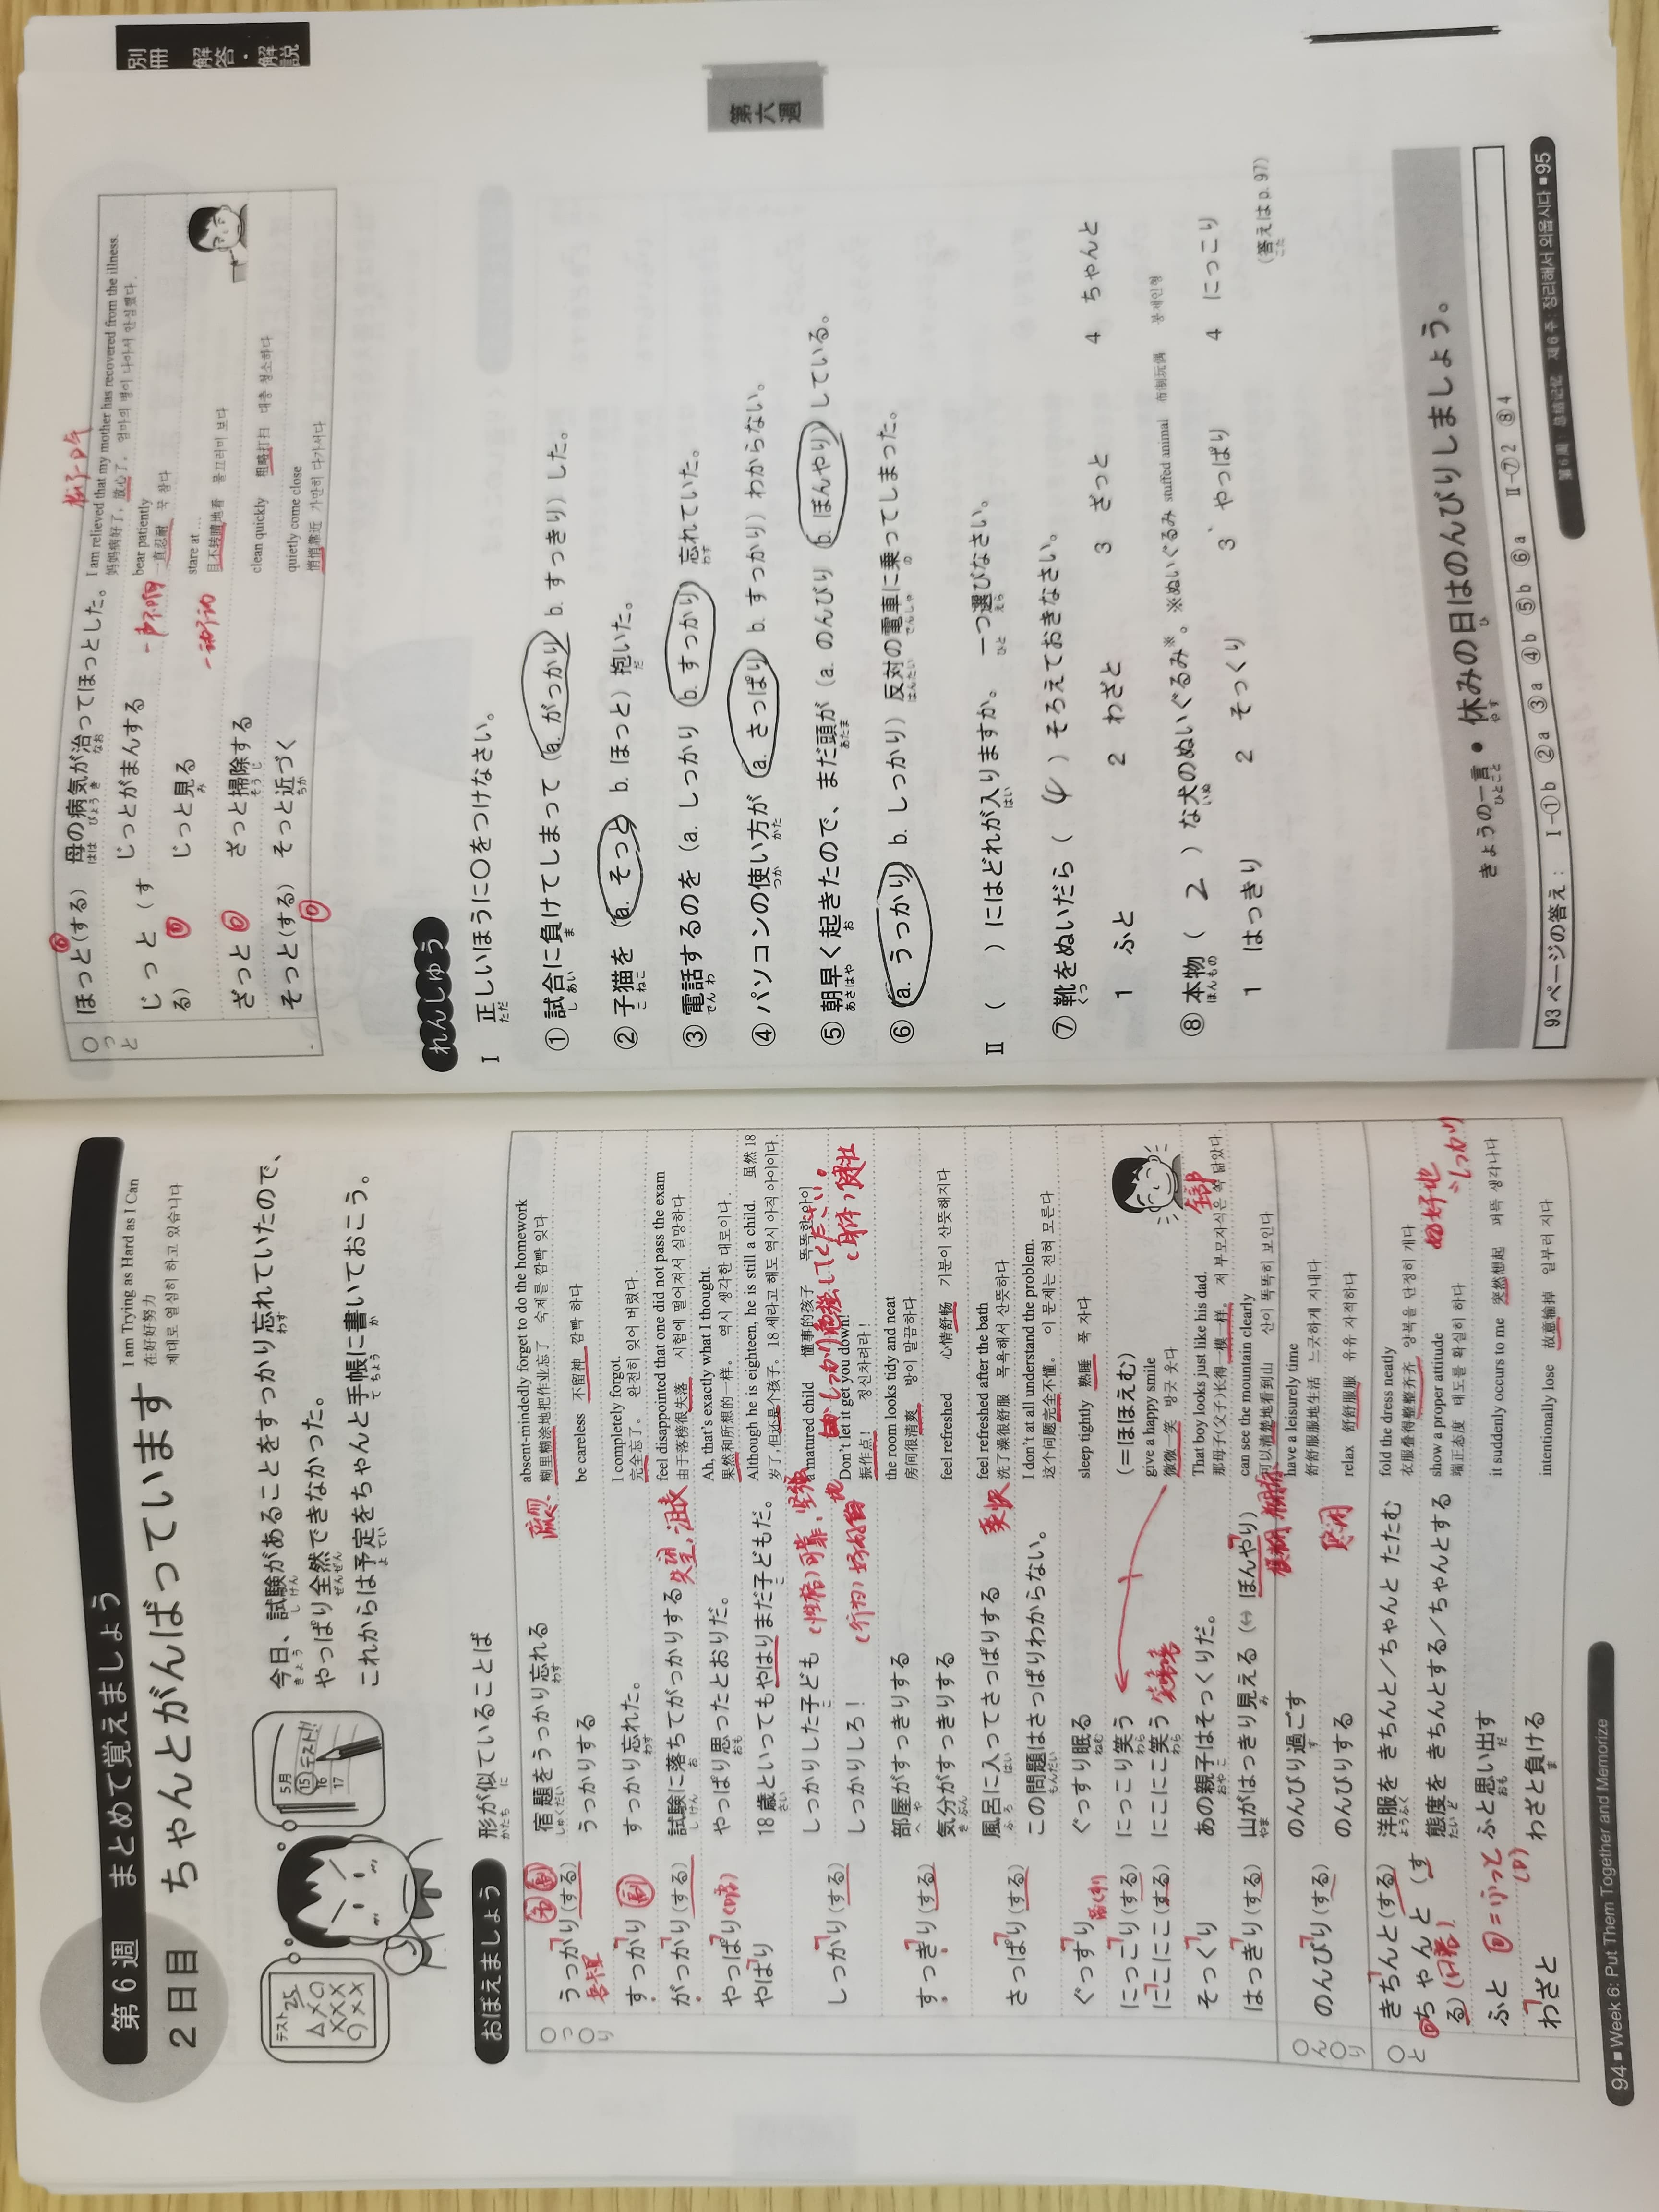 第6週 まとめて覚えましょう
2日目 ちゃんとがんばっています
I am Trying as Hard as I Can
在好好努力
제대로 열심히 하고 있습니다
テスト 25
5月
15 テスト!!
16
17
今日、試験があることをすっかり忘れていたので、
やっぱり全然できなかった。
これからは予定をちゃんと手帳に書いておこう。
おぼえましょう 形が似ていることば
○っ○り
うっかり(する) 宿題をうっかり忘れる absent-mindedly forget to do the homework
糊里糊涂地把作业忘了 숙제를 깜빡 잊다
うっかりする be careless 不留神 깜빡 하다
すっかり 副 すっかり忘れた。 I completely forgot.
完全忘了。 완전히 잊어 버렸다.
がっかり(する) 試験に落ちてがっかりする 失望,沮丧 feel disappointed that one did not pass the exam
由于落榜很失落 시험에 떨어져서 실망하다
やっぱり(口語) やっぱり思ったとおりだ。 Ah, that's exactly what I thought.
果然和所想的一样。 역시 생각한 대로이다.
やはり 18歳といってもやはりまだ子どもだ。 Although he is eighteen, he is still a child. 虽然18
岁了,但还是个孩子。 18세라고 해도 역시 아직 아이이다.
しっかり(する) しっかりした子ども (性格)可靠,坚强 a matured child 懂事的孩子 똑똑한 아이
しっかりしろ! Don't let it get you down! 振作点! 정신차려라!
しっかり勉強してください!
身体,健壮
すっきり(する) 部屋がすっきりする the room looks tidy and neat
房间很清爽 방이 말끔하다
気分がすっきりする feel refreshed 心情舒畅 기분이 산뜻해지다
さっぱり(する) 風呂に入ってさっぱりする 爽快 feel refreshed after the bath
洗了澡很舒服 목욕해서 산뜻하다
この問題はさっぱりわからない。 I don't at all understand the problem.
这个问题完全不懂。 이 문제는 전혀 모른다
ぐっすり ぐっすり眠る sleep tightly 熟睡 푹 자다
にっこり(する) にっこり笑う (=ほほえむ)
にこにこ(する) にこにこ笑う 笑嘻嘻 give a happy smile
微微一笑 방긋 웃다
そっくり あの親子はそっくりだ。 That boy looks just like his dad.
那母子(父子)长得一模一样。 저 부모자식은 쏙 닮았다.
全部
はっきり(する) 山がはっきり見える (⇔ ぼんやり) can see the mountain clearly
可以清楚地看到山 산이 똑똑히 보인다
模糊
○ん○り
のんびり(する) のんびり過ごす have a leisurely time
舒舒服服地生活 느긋하게 지내다
のんびりする 悠闲 relax 舒舒服服 유유 자적하다
○と
きちんと(する) 洋服を きちんと/ちゃんと たたむ fold the dress neatly
衣服叠得整整齐齐 양복을 단정히 개다
ちゃんと(する)(口語) 態度を きちんとする/ちゃんとする show a proper attitude
端正态度 태도를 확실히 하다
好好地
しっかり
ふと =ふっと ふと思い出す it suddenly occurs to me 突然想起 퍼뜩 생각나다
わざと わざと負ける intentionally lose 故意输掉 일부러 지다
94 ■ Week 6: Put Them Together and Memorize
○っと
ほっと(する) 母の病気が治ってほっとした。 I am relieved that my mother has recovered from the illness.
妈妈病好了,放心了。 엄마의 병이 나아서 안심했다.
じっと(する) じっとがまんする bear patiently
一直忍耐 꾹 참다
一声不吭
じっと見る stare at…
目不转睛地看 물끄러미 보다
一动不动
ざっと ざっと掃除する clean quickly 粗略打扫 대충 청소하다
そっと(する) そっと近づく quietly come close
悄悄靠近 가만히 다가서다
別冊 解答・解説
第六週
れんしゅう
Ⅰ 正しいほうに○をつけなさい。
① 試合に負けてしまって(a. がっかり b. すっきり)した。
② 子猫を(a. そっと b. ほっと)抱いた。
③ 電話するのを(a. しっかり b. すっかり)忘れていた。
④ パソコンの使い方が(a. さっぱり b. すっかり)わからない。
⑤ 朝早く起きたので、まだ頭が(a. のんびり b. ぼんやり)している。
⑥ (a. うっかり b. しっかり)反対の電車に乗ってしまった。
Ⅱ ( )にはどれが入りますか。一つ選びなさい。
⑦ 靴をぬいだら( 4 )そろえておきなさい。
1 ふと 2 わざと 3 ざっと 4 ちゃんと
⑧ 本物( 2 )な犬のぬいぐるみ※。 ※ぬいぐるみ stuffed animal 布制玩偶 봉제인형
1 はっきり 2 そっくり 3 やっぱり 4 にっこり
(答えは p. 97)
きょうの一言 ● 休みの日はのんびりしましょう。
93ページの答え: Ⅰ-①b ②a ③a ④b ⑤b ⑥a Ⅱ-⑦2 ⑧4
第6周: 总结记忆 제6주: 정리해서 외웁시다 ■ 95